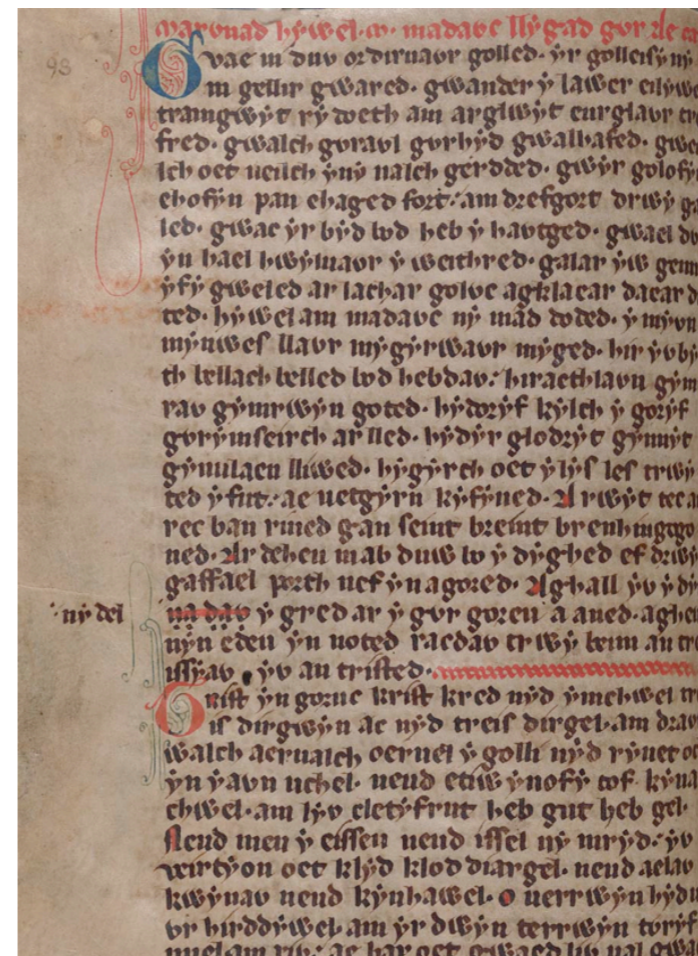 marvnad hẏwel. m. madavc llẏgad gvr ae ca
Gvae ni duv ordiruavr golled. ẏr golleisẏ nẏ
m gellir gwared. gwander ẏ lawer eilẏwe
tramgwẏt rẏ doeth am arglwẏt eurglavr tre
fred. gwalch gvravl gvrhẏd gwalhafed. gwei
lch oet ueilch ẏnẏ nalch gerdded. gwẏr golofẏn
ehofẏn pan ehaged fort. am drefgort drwẏ ga
led. gwae ẏr bẏd bod heb ẏ havtged. gwael dv
ẏn hael hwẏluavr ẏ weithred. galar ẏw genn
ẏfẏ gweled ar lachar golvc agklaear daear d
ted. hẏwel am madavc nẏ mad doded. ẏ mẏvn
mẏnwes llavr mẏgẏrwavr mẏged. hir ẏv bẏ
th bellach belled bod hebdav. hiraethlavn gẏm
rav gẏmrwẏn goted. hẏdẏrf kẏlch ẏ gorẏf
gvrẏmseirch ar lled. hẏdẏr glodrẏt gẏnnẏt
gẏnulaeu lliwed. hẏgẏrch oet ẏ lẏs les trwẏ
ted ẏ fut. ac uetgẏrn kẏfẏned. A rwẏt tec a
rec ban rined gan seint breint brenhingego
ned. Ar deheu mab duw bo ẏ dẏghed ef drwẏ
gaffael porth nef ẏn agored. Aghall ẏv ẏ dẏ
ny del
na dav ẏ gred ar ẏ gvr goreu a aned. aghei
nẏn edeu ẏn noted racdav trwẏ beun au tre
issẏav ẏv an tristed.
Grist ẏn gorue krist kred nẏd ẏmchwel tr
is dirgwẏn ac nẏd treis dirgel. am drav
walch aerualch oeruel ẏ golli nẏd rẏuet oe
ẏn ẏavn uchel. neud etiw ẏnofẏ cof kẏua
chwel. am lẏv cletẏfrut heb gut heb gel.
Neud meu ẏ eissen neud issel nẏ mrẏd. ẏv
veirtẏon oet klẏd klod diargel. neud aelav
kwẏnav neud kẏnhawel. o uerrwẏn hẏdu
vr hirddẏwel am ẏr dwẏn terrwẏn torẏf